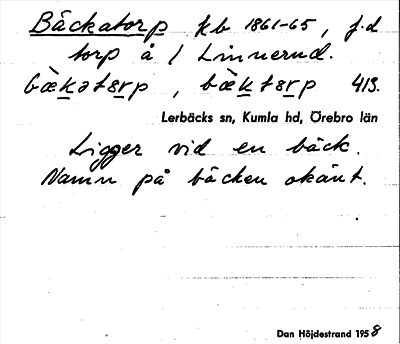 Bäckatorp kb 1861-65, f.d
torp å 1 Linnerud.
bæ̀katɷrp, bæ̀ktɷrp 413.
Lerbäcks sn, Kumla hd, Örebro län
Ligger vid en bäck.
Namn på bäcken okänt.
Dan Höjdestrand 1958